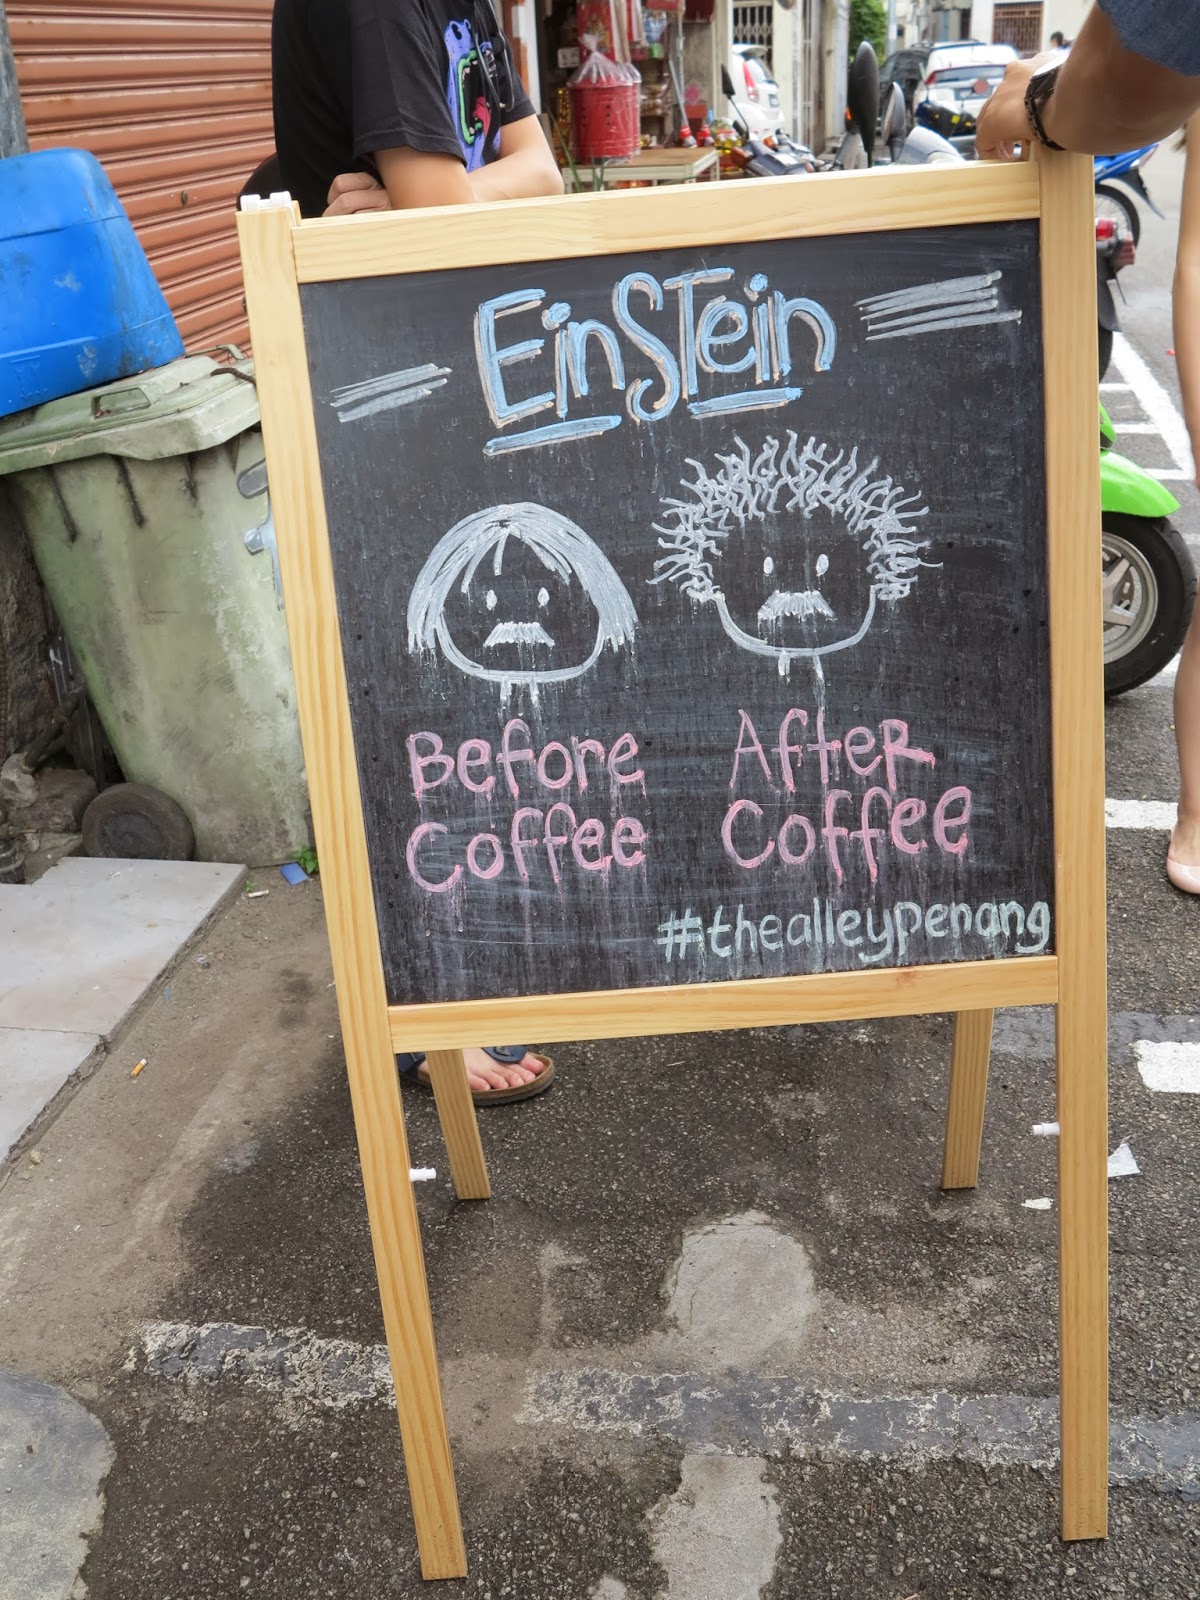 EinSTein
Before After
Coffee Coffee
#thealleypenang